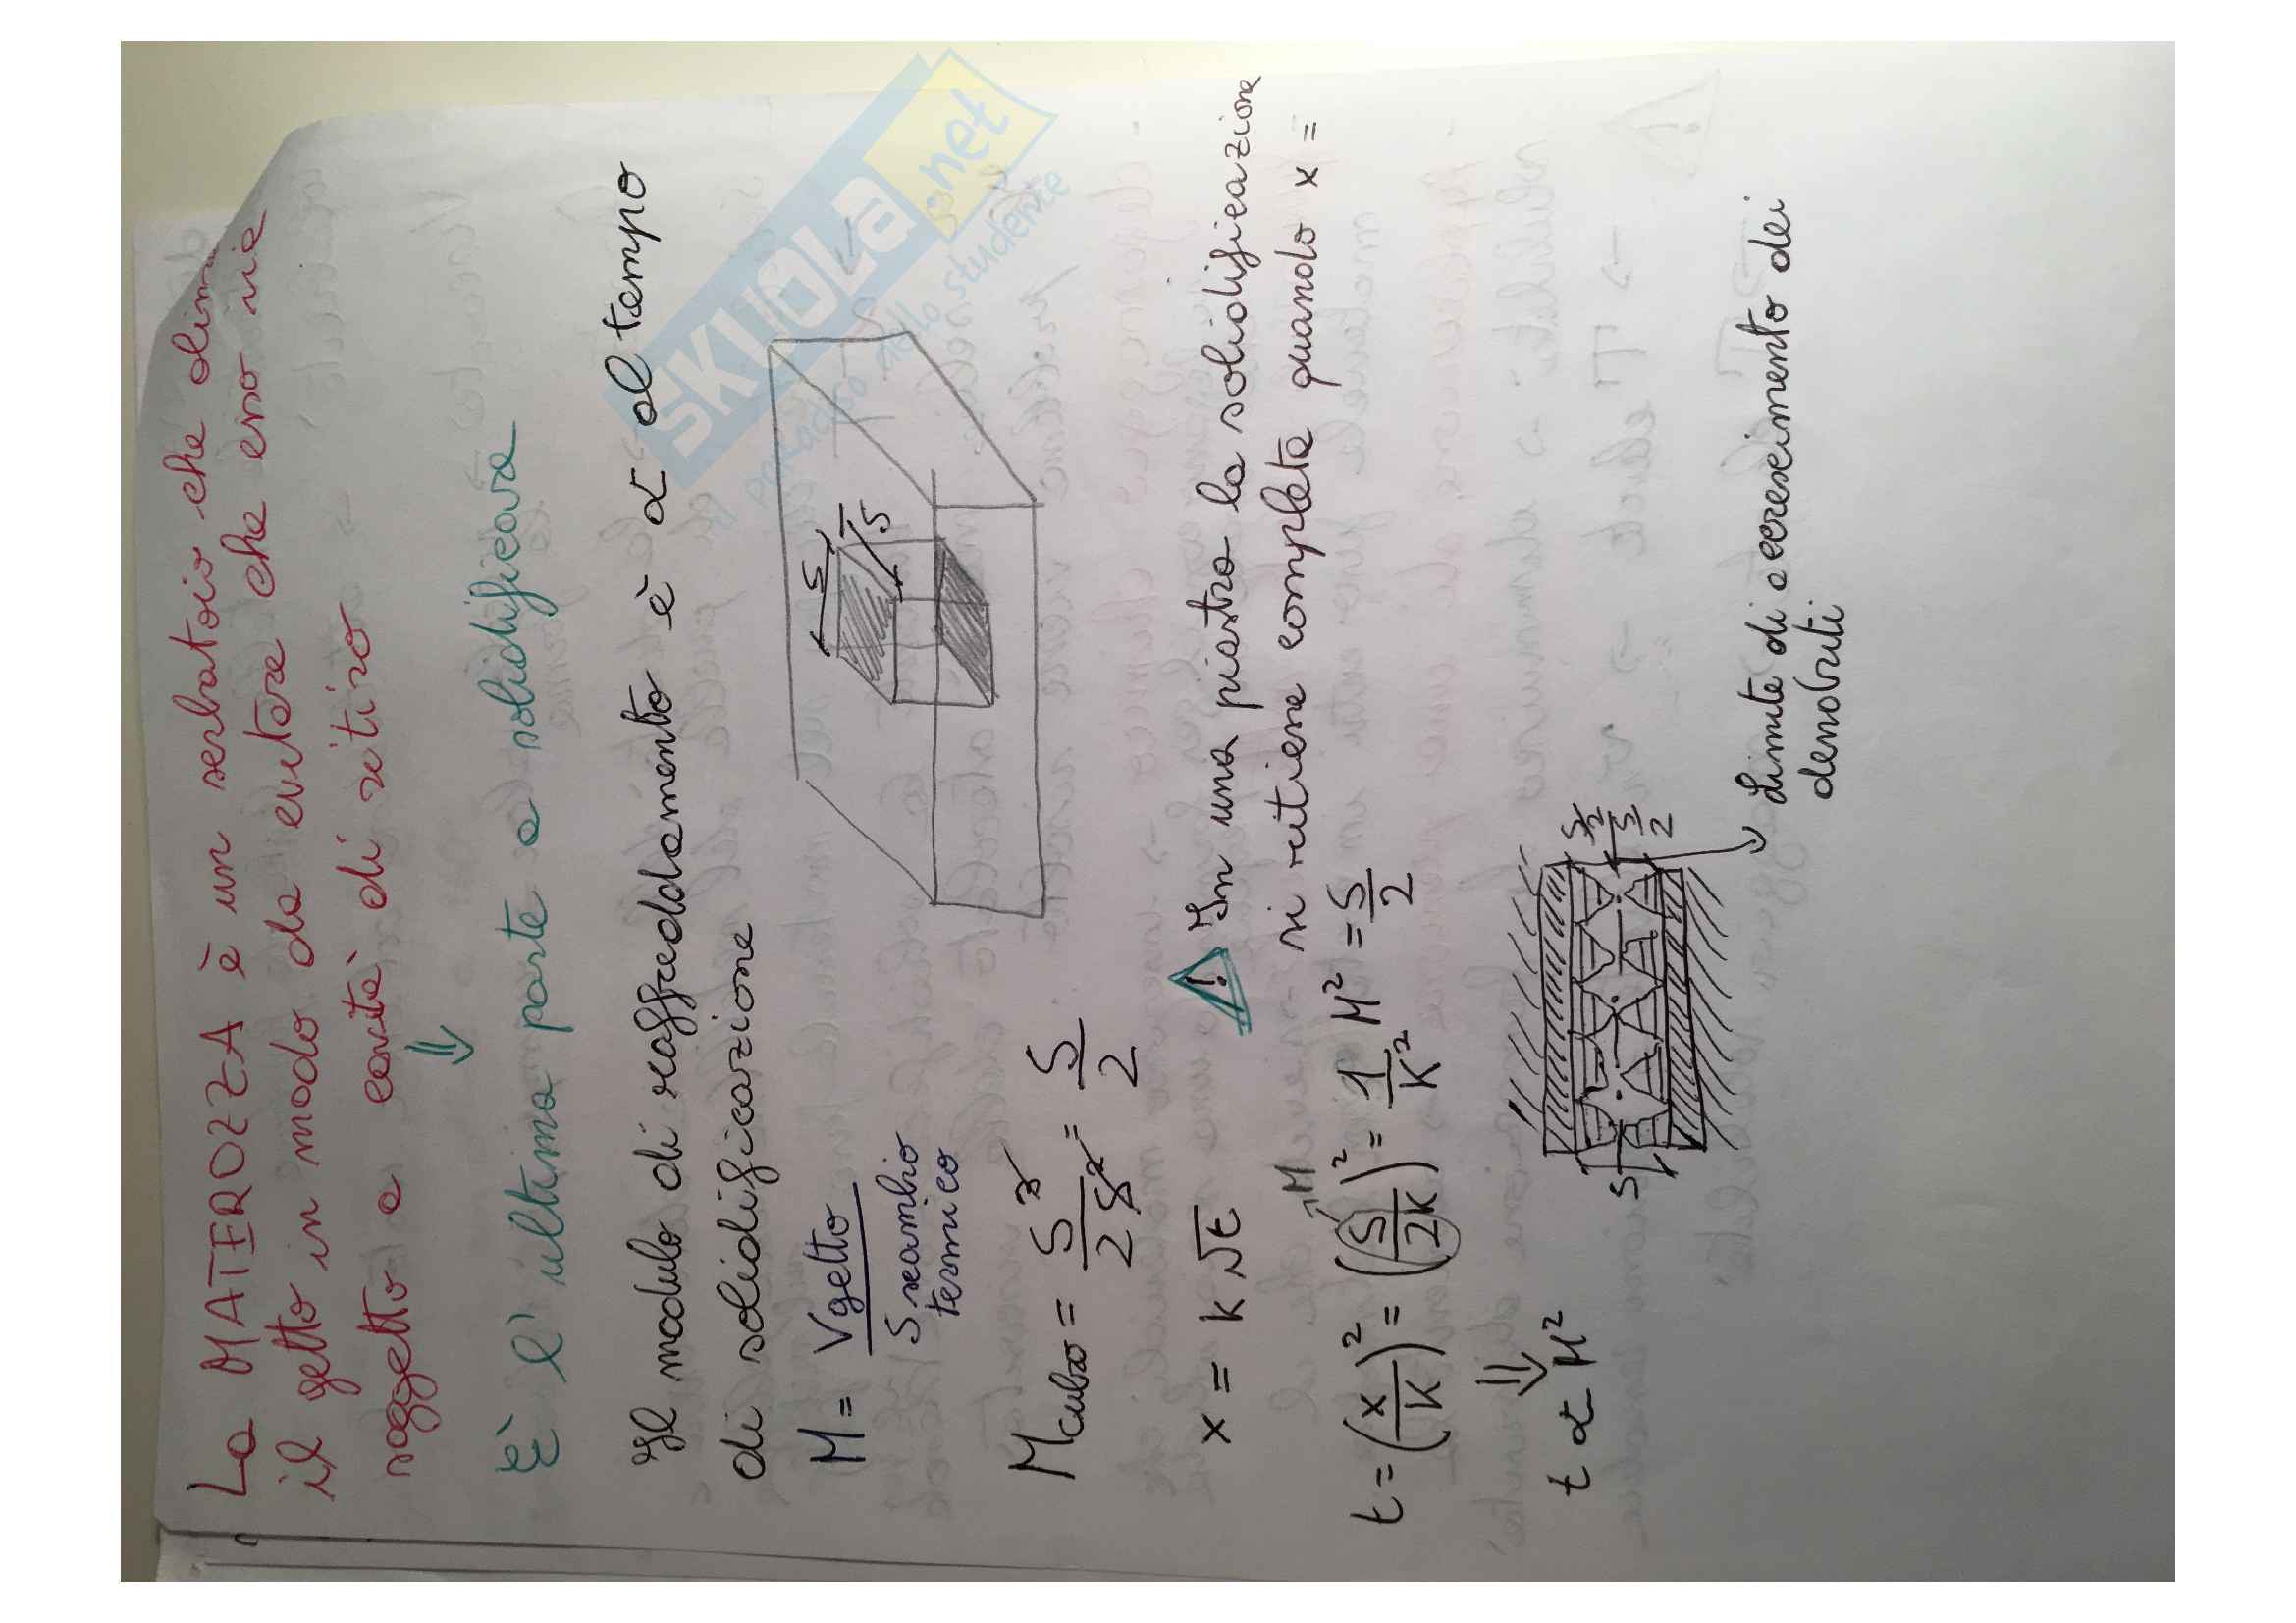 La MATEROZZA è un serbatoio che alim
il getto in modo da evitare che esso sia
soggetto a cavità di ritiro
⇓
È l'ultima parte a solidificare
Il modulo di raffreddamento è ∝ al tempo
di solidificazione
M = Vgetto / S scambio termico
S
S
Mcubo = S³ / 2S² = S/2
⚠ In una piastra la soliolificazione
si ritiene completa quando x =
= S/2
x = k√t
t = (x/K)² = (S/2K)² = 1/K² M²
→M
⇓
t ∝ M²
S
S/2
S/2
Limite di accrescimento dei
dendriti
SKUOLA.net
paradiso dello studente